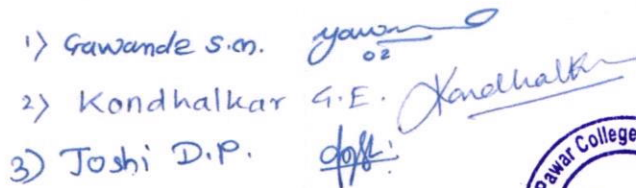 1) Gawande S.M.
02
2) Kondhalkar G.E. Kondhalkar
3) Joshi D.P. Joshi
Pawar College